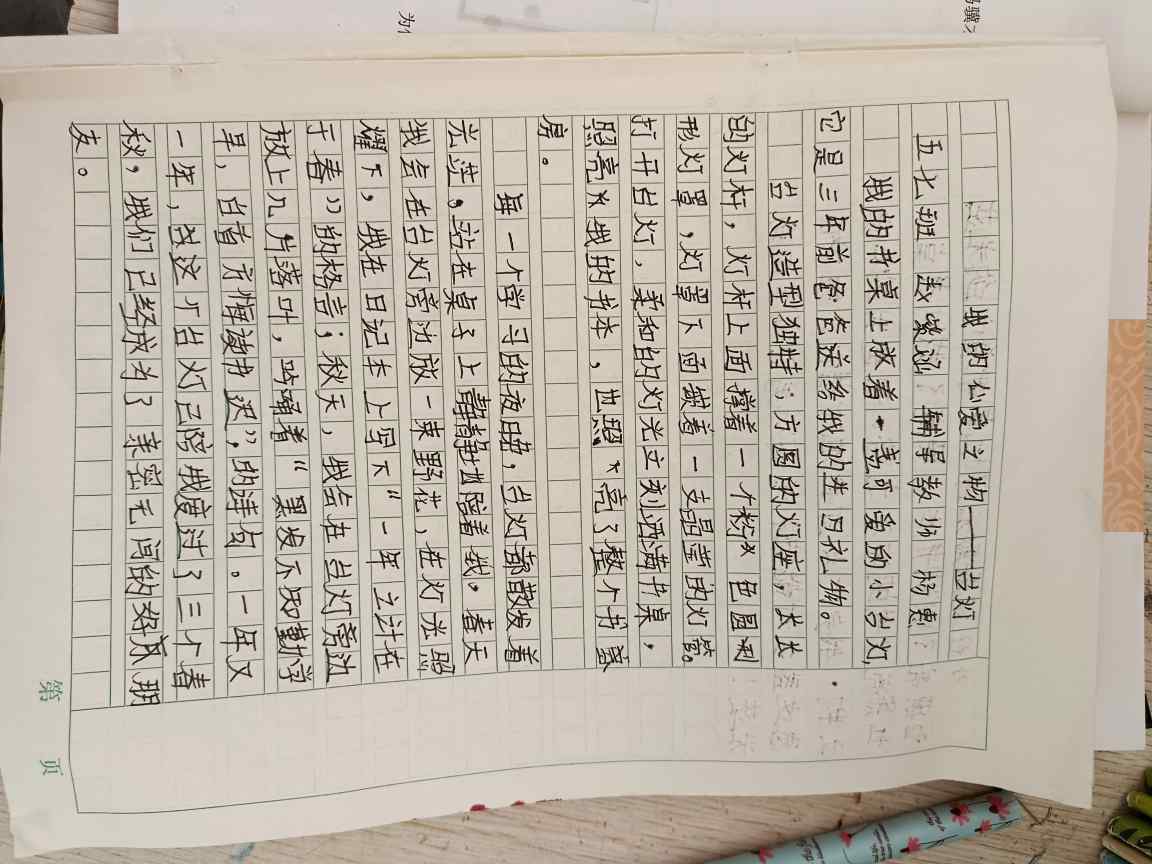 我的心爱之物——台灯
五七班 辅导教师 杨惠
我的书桌上放着一盏可爱的小台灯,
它是三年前爸爸送给我的生日礼物。
台灯造型独特:方圆的灯座,长长
的灯杆,灯杆上面撑着一个粉色圆形
形灯罩,灯罩下面嵌着一支晶莹的灯管。
打开台灯,柔和的灯光立刻洒满书桌,
照亮了我的书本,也照亮了整个书
房。
每一个学习的夜晚,台灯都散发着
光芒,站在桌子上静静地陪着我。春天
我会在台灯旁边放一束野花,在灯光照
耀下,我在日记本上写下“一年之计在
于春”的格言;秋天,我会在台灯旁边
放上几片落叶,吟诵着“黑发不知勤学
早,白首方悔读书迟”的诗句。一年又
一年,这个台灯已陪我度过了三个春
秋,我们已经成为了亲密无间的好朋
友。
第 页
为